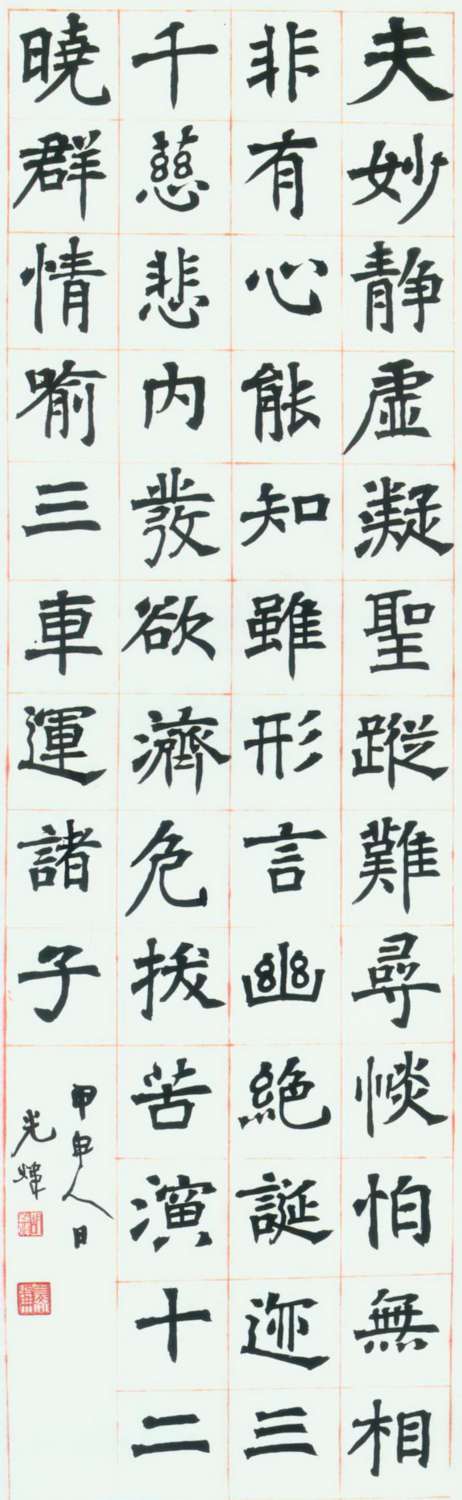 夫妙靜虛凝聖蹤難尋惔怕無相
非有心能知雖形言幽絕誕迩三
千慈悲內發欲濟危拔苦演十二
曉群情喻三車運諸子
甲申人日
光煒